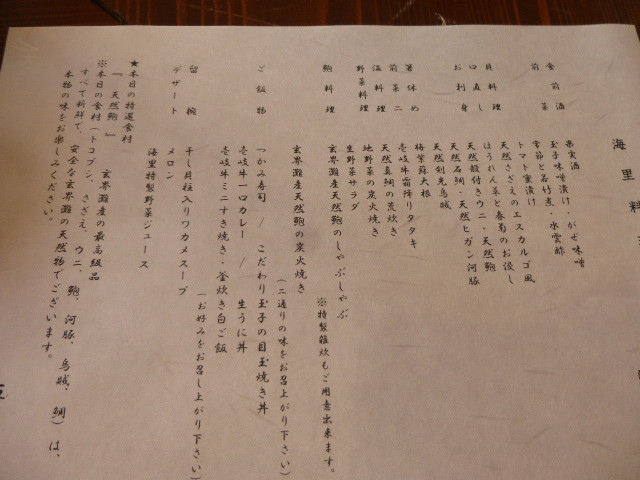 海里料
食前酒 果実酒
前菜 玉子味噌漬け・がぜ味噌
季節と若竹煮・水雲酢
トマト蜜漬け
貝料理 天然さざえのエスカルゴ風
口直し ほうれん草と春菊のお浸し
お刺身 天然殻付きウニ・天然鮑
天然石鯛・天然ヒガン河豚
天然剣先烏賊
箸休め 梅紫蘇大根
前菜二 壱岐牛霜降りタタキ
温料理 天然真鯛の荒炊き
野菜料理 地野菜の炭火焼き
生野菜サラダ
鮑料理 玄界灘産天然鮑のしゃぶしゃぶ
※特製雑炊もご用意出来ます。
玄界灘産天然鮑の炭火焼き
(二通りの味をお召上がり下さい)
ご飯物 つかみ寿司 / こだわり玉子の目玉焼き丼
壱岐牛一口カレー / 生うに丼
壱岐牛ミニすき焼き・釜炊き白ご飯
(お好みをお召し上がり下さい)
留椀 干し貝柱入りワカメスープ
デザート メロン
海里特製野菜ジュース
★本日の特選食材
『天然鮑』 玄界灘産の最高級品
※本日の食材(トコブシ、さざえ、ウニ、鮑、河豚、烏賊、鯛)は、
すべて新鮮で、安全な玄界灘の天然物でございます。
本物の味をお楽しみください。